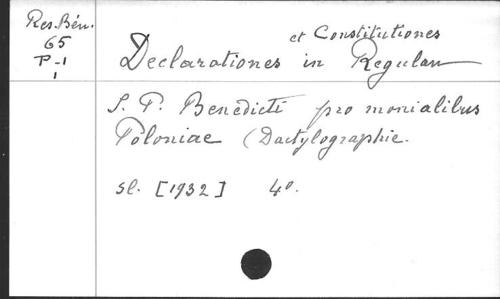 Res. Bén.
65
P-1
1
et Constitutiones
Declarationes in Regulam
S. P. Benedicti pro monialibus
Poloniae (Dactylographie.
sl. [1932] 4º.